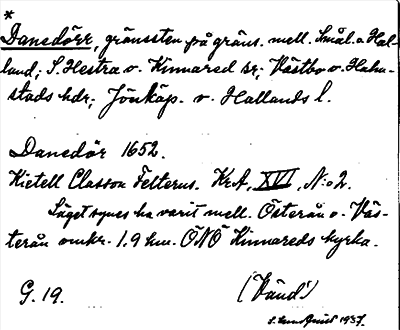 *
Danedörr, gränssten på gräns. mell. Smål. o Hal-
land; S. Hestra o. Kinnared sr; Västbo o. Halm-
stads hdr; Jönköp. o. Hallands l.
Danedör 1652.
Kietell Classon Felterus. KrA, XVI, N:o 2.
Läget synes ha varit mell. Österån o. Väs-
terån omkr. 1.9 km. ÖNÖ Kinnareds kyrka.
G. 19.
(Vänd!)
1937.